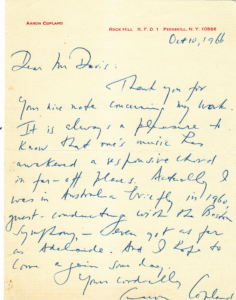 AARON COPLAND
ROCK HILL R.F.D. 1 PEEKSKILL, N.Y. 10566
Oct 10, 1966
Dear Mr Davis:
Thank you for
your nice note concerning my work.
It is always a pleasure to
know that one's music has
awakened a responsive chord
in far-off places. Actually I
was in Australia briefly in 1960,
guest-conducting with the Boston
Symphony — even got as far
as Adelaide. And I hope to
come again some day.
Yours cordially
Aaron Copland